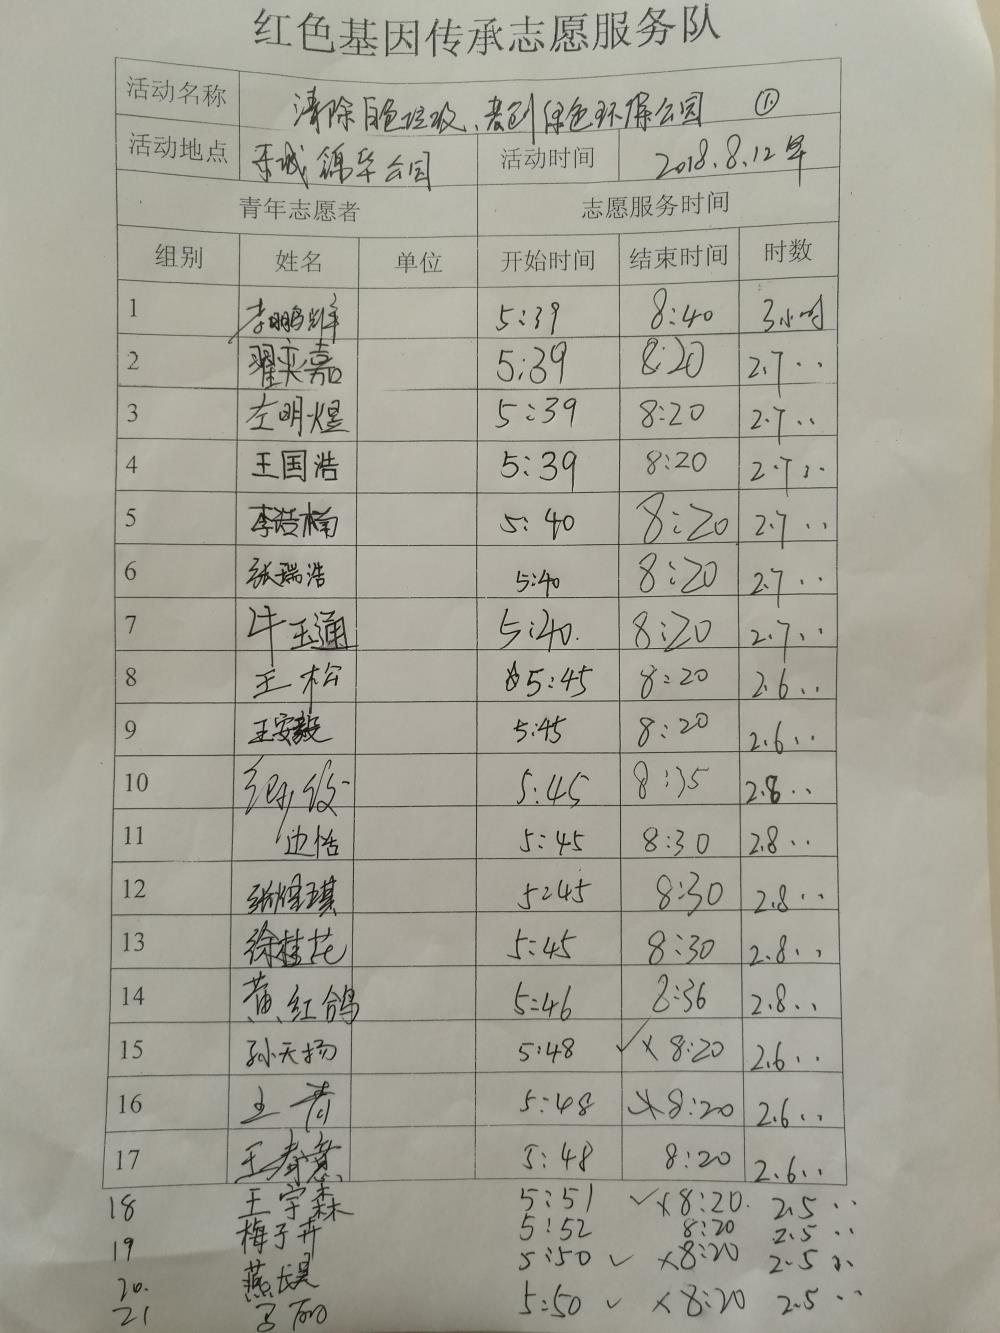 红色基因传承志愿服务队
活动名称 清除白色垃圾、共创绿色环保公园 ①
活动地点 东城锦华公园 活动时间 2018.8.12早
青年志愿者 志愿服务时间
组别 姓名 单位 开始时间 结束时间 时数
1 李鹏辉 5:39 8:40 3小时
2 翟奕嘉 5:39 8:20 2.7..
3 左明煜 5:39 8:20 2.7..
4 王国浩 5:39 8:20 2.7..
5 李浩楠 5:40 8:20 2.7..
6 张瑞浩 5:40 8:20 2.7..
7 牛玉通 5:40. 8:20 2.7..
8 王松 5:45 8:20 2.6..
9 王安毅 5:45 8:20 2.6..
10 5:45 8:35 2.8..
11 边恬 5:45 8:30 2.8..
12 张煜琪 5:45 8:30 2.8..
13 徐桂花 5:45 8:30 2.8..
14 黄红鸽 5:46 8:36 2.8..
15 孙天扬 5:48 ✓ × 8:20 2.6..
16 王青 5:48 × 8:20 2.6..
17 王春 5:48 8:20 2.6..
18 王宇森 5:51 ✓ × 8:20. 2.5..
19 梅子卉 5:52 8:20 2.5..
20. 燕 5:50 ✓ × 8:20 2.5..
21 马丽 5:50 ✓ × 8:20 2.5..